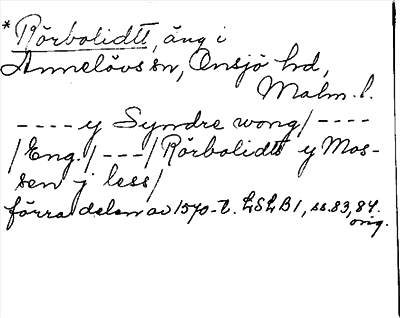 *Rörbolidtt, äng i
Annelövs sn, Onsjö hd,
Malm. l.
---- y Syndre wong/ ----
/Eng./ ---/ Rörbolidtt y Mos-
sen j less/
förra delen av 1570-t. LSLB1, ss. 83, 84.
orig.